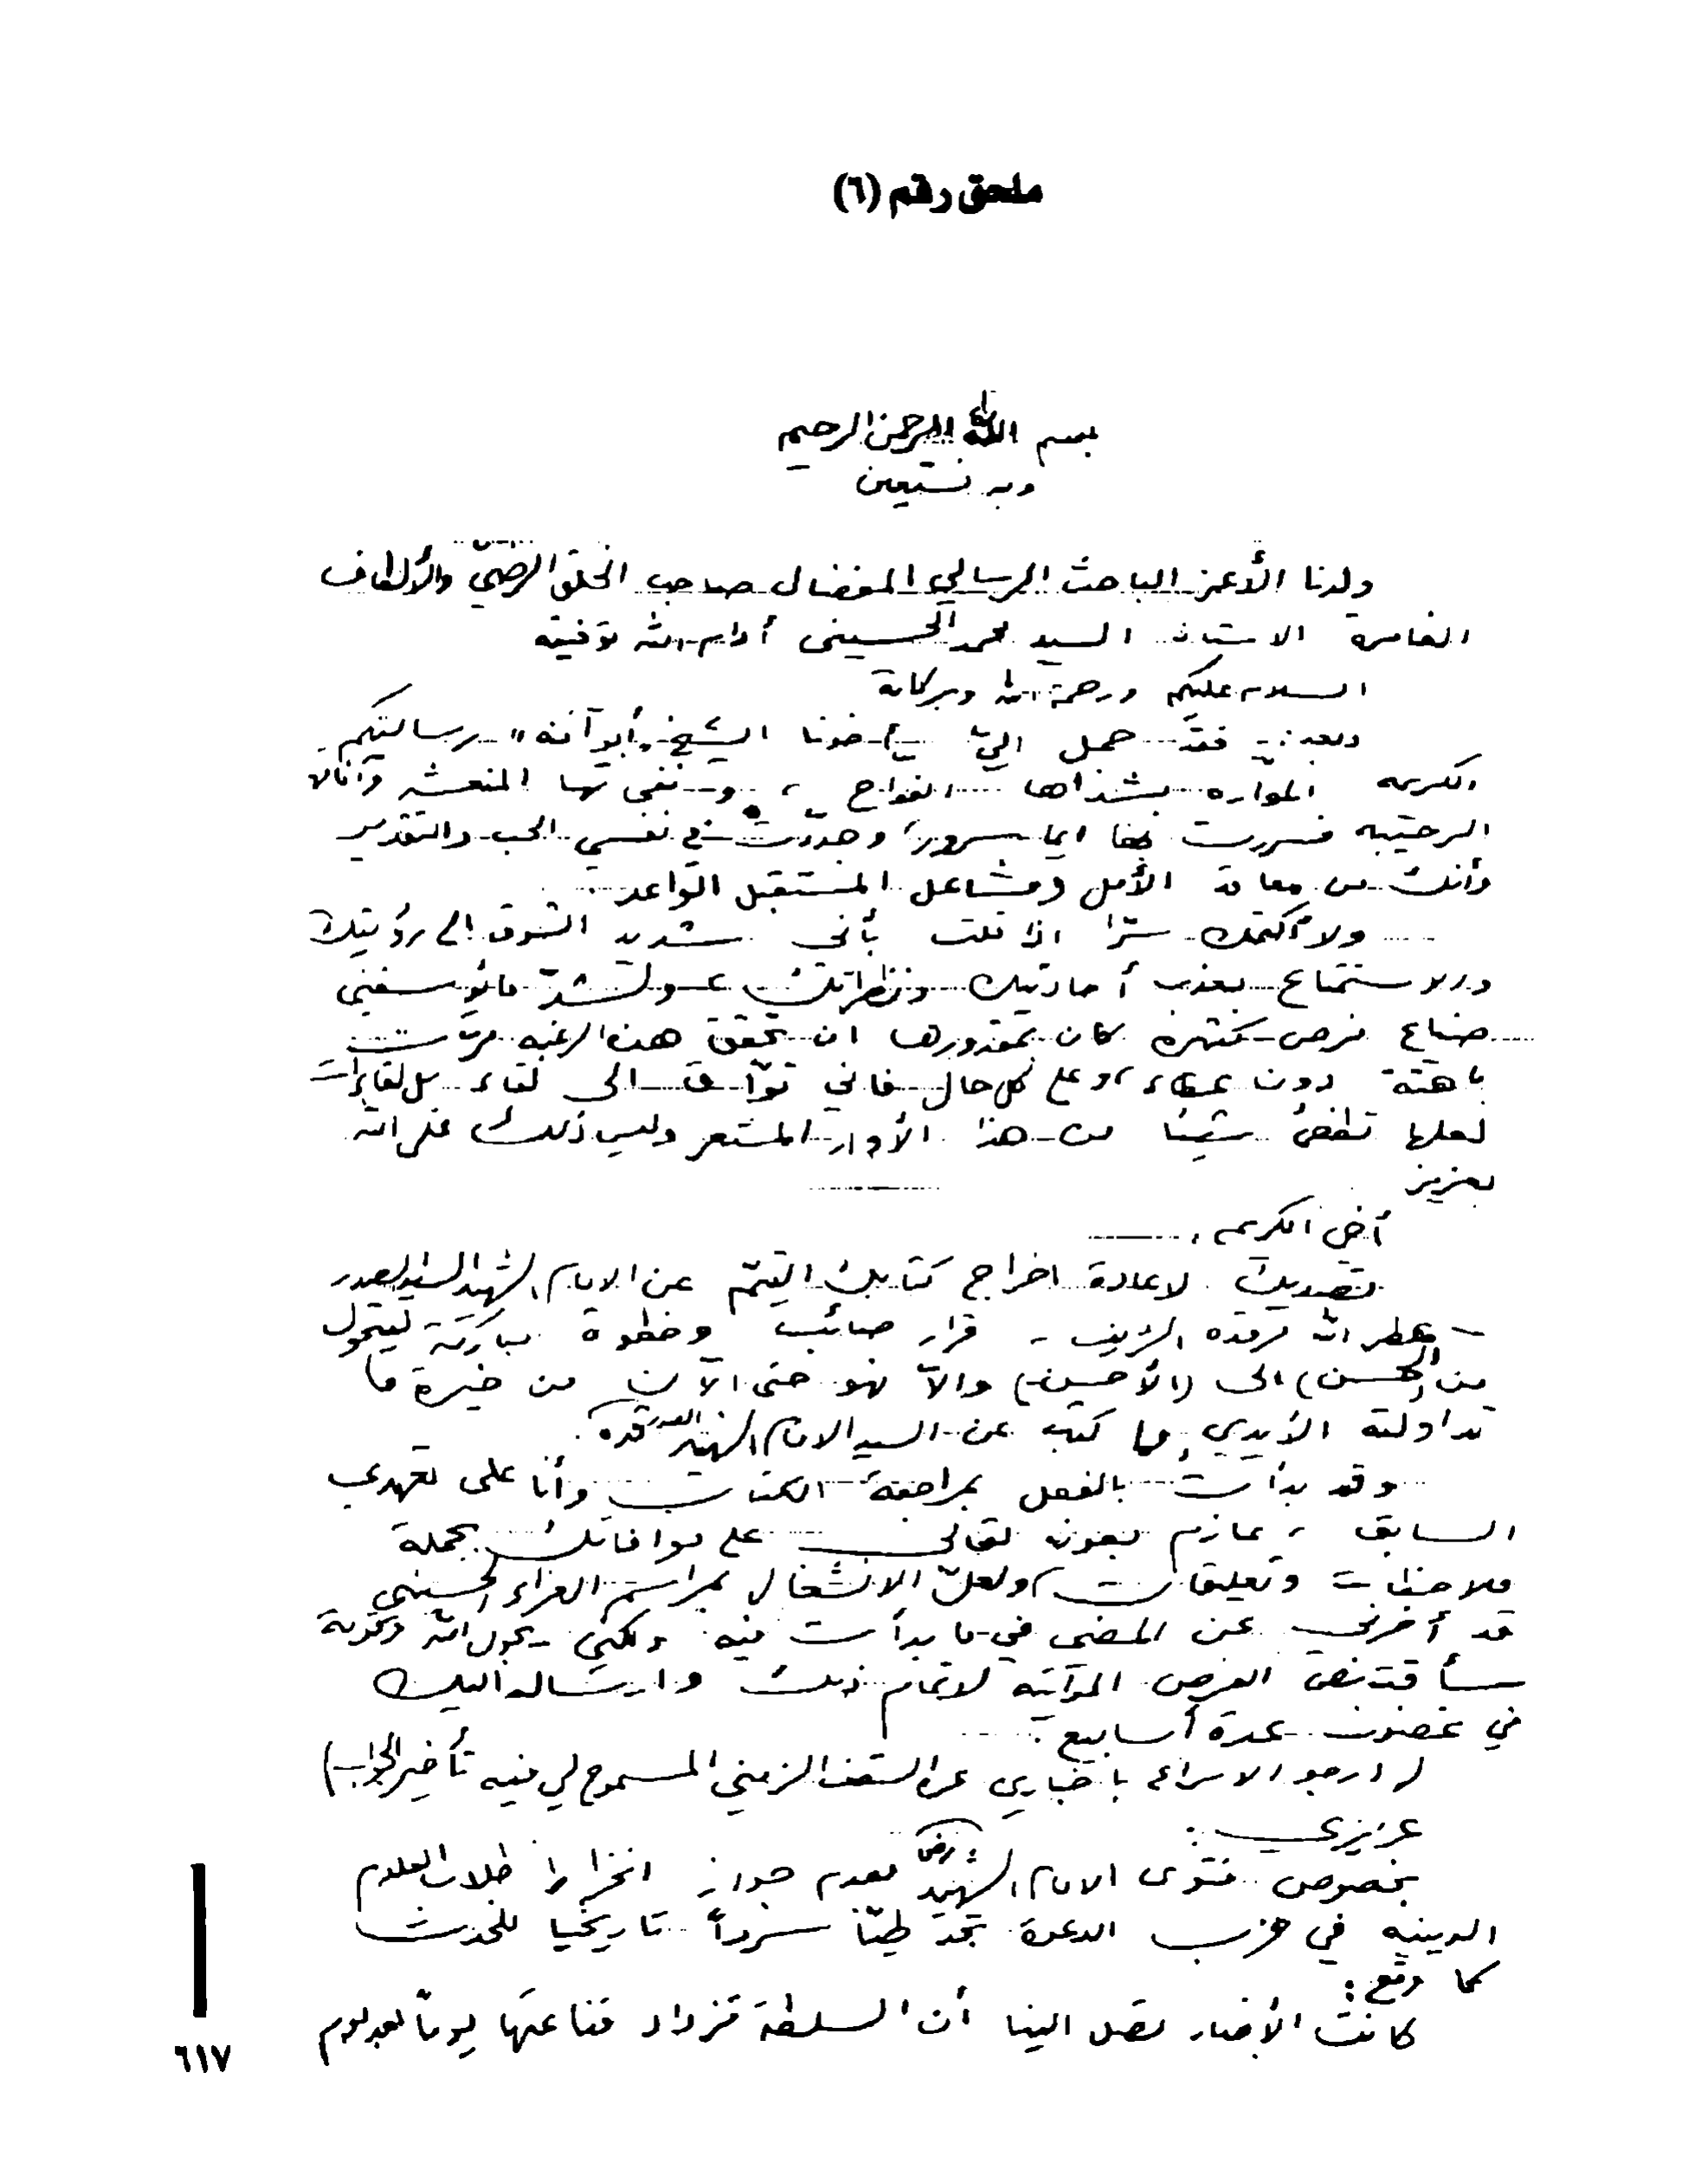 ملحق رقم (٦)
بسم الله الرحمن الرحيم
وبه نستعين
ولدنا الأعز الباحث الرسالي المفضال صاحب الخلق الرضيّ والألطاف
الغامرة الاستاذ السيد محمد الحسيني أدام الله توفيقه
السلام عليكم ورحمة الله وبركاته
وبعد: فقد حمل اليّ الشيخ "أبو آمنة" رسالتكم
الكريمه بشذاها الفواح، المنعشه
فسررت بها ايما سرور، وجددت في نفسي الحب والتقدير
وأنك من الأمل ومشاعل المستقبل الواعد.
ولا أكتمك سرّا اذا قلت بأني شديد الشوق الى رؤيتك
والاستمتاع بعذب أحاديثك ونظراتك ولشدّ ما يؤسفني
ضياع فرص كثيره كان بمقدورها ان تحقق هذه الرغبه مرّت
باهتة دون عطاء، وعلى كل حال فاني توّاق الى لقاء بل لقاءات
لعلها تطفئ شيئا من هذا الأوار المستعر وليس ذلك على الله
بعزيز
أخي الكريم،
تصديك لاعادة اخراج كتابك القيّم عن الامام الشهيد السيد الصدر
- عطر الله مرقده الشريف - قرار صائب وخطوة مباركة ليتحول
من (الحسن) الى (الأحسن) والاّ فهو حتى الآن من خيرة ما
تداولته الأيدي مما كتب عن السيد الامام الشهيد الصدر قده.
وقد بدأت بالفعل بمراجعة الكتاب وأنا على تعهدي
السابق، عازم بعونه تعالى على موافاتك بجملة
ملاحظات وتعليقات، ولعلّ الانشغال بمراسم العزاء الحسيني
قد أخرني عن المضي في ما بدأت فيه ولكني بحول الله وقوته
سأقتنص الفرص المؤاتيه لاتمام ذلك وارساله اليك
في غضون عدة أسابيع.
(ارجو الاسراع باخباري عن السقف الزمني المسموح لي فيه تأخير الجواب)
عزيزي:
بخصوص فتوى الامام الشهيد رض بعدم جواز انخراط طلاب العلوم
الدينيه في حزب الدعوة تجد طيّا سرداً تاريخيا للحدث
كما وقع:
كانت الأخبار تصل الينا أن السلطة تزداد قناعتها يوماً بعد يوم
٦١٧